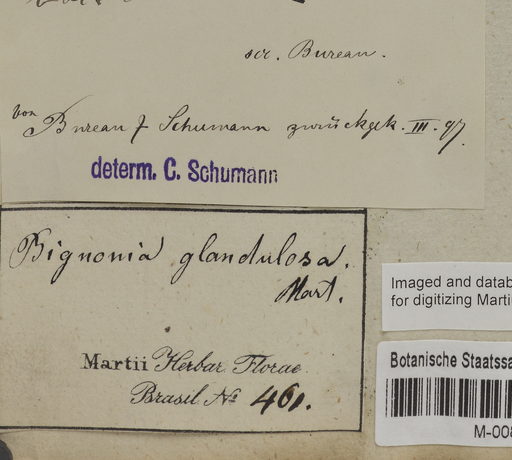 scr. Bureau.
von Bureau f Schumann zurückgek. III. 97.
determ. C. Schumann
Bignonia glandulosa.
Mart.
Martii Herbar. Florae
Brasil. No 461.
Imaged and datab
for digitizing Marti
Botanische Staatssa
M-008